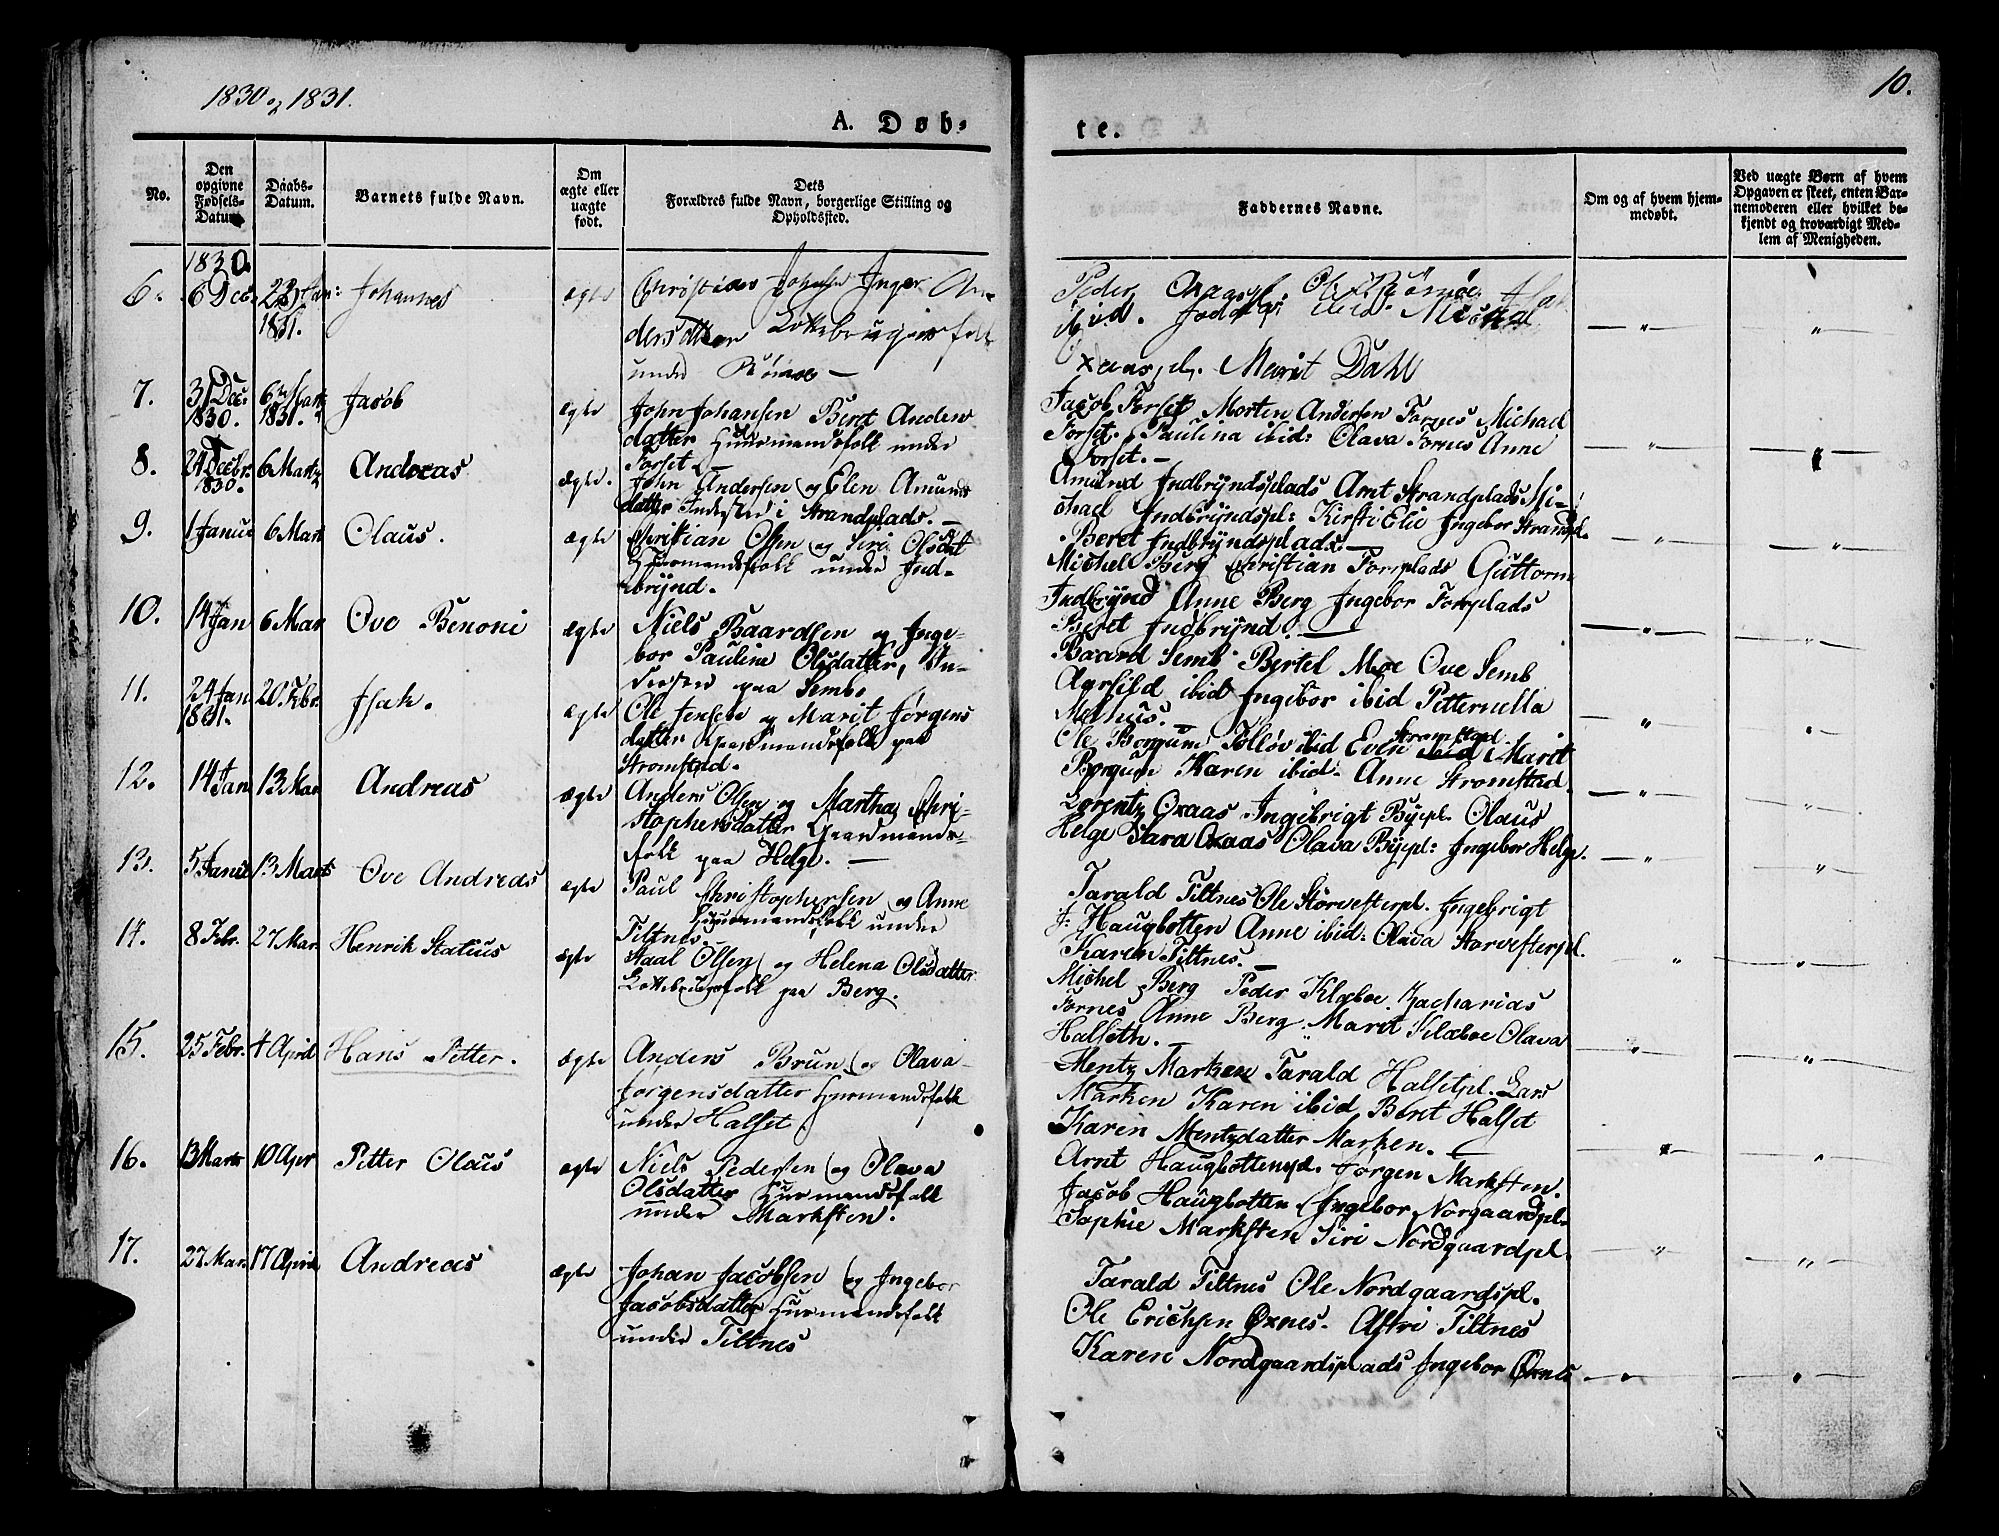 1830 og 1831.
10.
A. Døb-
te.
No.
Den opgivne Fødsels-Datum.
Daabs-Datum.
Barnets fulde Navn.
Om ægte eller uægte født.
Dets
Forældres fulde Navn, borgerlige Stilling og
Opholdsted.
Faddernes Navne.
Om og af hvem hjem-
medøbt.
Ved uægte Børn af hvem
Opgaven er skeet, enten Bar-
nemoderen eller hvilket be-
kjendt og troværdigt Med-
lem af Menigheden.
1830.
6. 6 Dec. 23 Jan: 1831. Johannes ægte
Johnsen Inger An-
dersdatter
under
Peder
ibid.
Marit Dahl
7. 31 Dec: 1830. 6 Mart 1831. Jacob ægte
John Johansen Beret Anders
datter Huusmandsfolk under
Forset.
Jacob Forset Morten Andersen Fornes Michael
Forset. Paulina ibid: Olava Fornes Anne
Forset. —
8. 24 Decbr. 1830. 6 Marts Andreas ægte.
John Andersen og Elen Amunds
datter Inderster i Strandplads. —
Amund Indbryndsplads Arnt Strandplads Mi-
chael Indbryndspl: Kirsti Elie Ingebor Strandpl.
Beret Indbryndsplads —
9. 1 Januar 6 Mart Olaus. ægte
Christian Olsen og Siri Olsdat
Huusmandsfolk under Ind-
brynd.
Michel Berg Christian Fornplads Guttorm
Indbrynd Anne Berg Ingebor Fornplads
Beret Indbrynd. —
10. 14 Jan 6 Mar Ove Benoni ægte
Niels Baardsen og Inge-
bor Pauline Olsdatter, In-
derster paa Semb.
Baard Semb Bertel Moe Ove Semb
ibid Ingebor ibid Petternella
Melhus. —
11. 24 Jan 1831. 20. Febr. Isak. ægte
Ole Jensen og Marit Jørgens
datter Gaardmandsfolk paa
Stromstad.
Ole Borgum Tolløv ibid Even Stromstad Marit
Borgum Karen ibid. Anne Stromstad.
12. 14 Jan 13 Mar Andreas ægte
Anders Olsen og Martha Chri-
stophersdatter Gaardmands-
folk paa Helge. —
Lorentz Oxaas Ingebrigt Bypl. Olaus
Helge Sara Oxaas Olava Bypl: Ingebor Helge.
13. 5 Januar 13 Marts Ove Andreas ægte
Paul Christophersen og Anne
Huusmandsfolk under
Tiltnes.
Tarald Tiltnes Ole Størvesterpl. Ingebrigt
Haugbotten Anne ibid: Olava Størvesterpl.
Karen Tiltnes. —
14. 8 Febr. 27 Mar. Henrik Statius ægte
Staal Olsen og Helena Olsdatter
paa Berg.
Michel Berg Peder Klæboe Zacharias
Fornes Anne Berg. Marit Klæboe Olava
Halseth. —
15. 25 Febr. 4 April Hans Petter. ægte
Anders Brun og Olava
Jørgensdatter Huusmandsfolk
under Halset.
Mentz Marken Tarald Halsetpl. Lars
Marken Karen ibid Beret Halset
Karen Mentzdatter Marken. —
16. 13 Marts 10 Apr Petter Olaus ægte
Niels Pedersen og Olava
Olsdatter Huusmandsfolk
under Marksten.
Arnt Haugbottenpl. Jørgen Marksten.
Jacob Haugbotten Ingebor Norgaardpl.
Sophie Marksten Siri Nordgaardpl.
17. 27 Mar. 17 April Andreas ægte
Johan Jacobsen og Ingebor
Jacobsdatter Huusmandsfolk
under Tiltnes
Tarald Tiltnes Ole Nordgaardspl.
Ole Erichsen Øxnes. Astri Tiltnes
Karen Nordgaardsplads Ingebor Øxnes